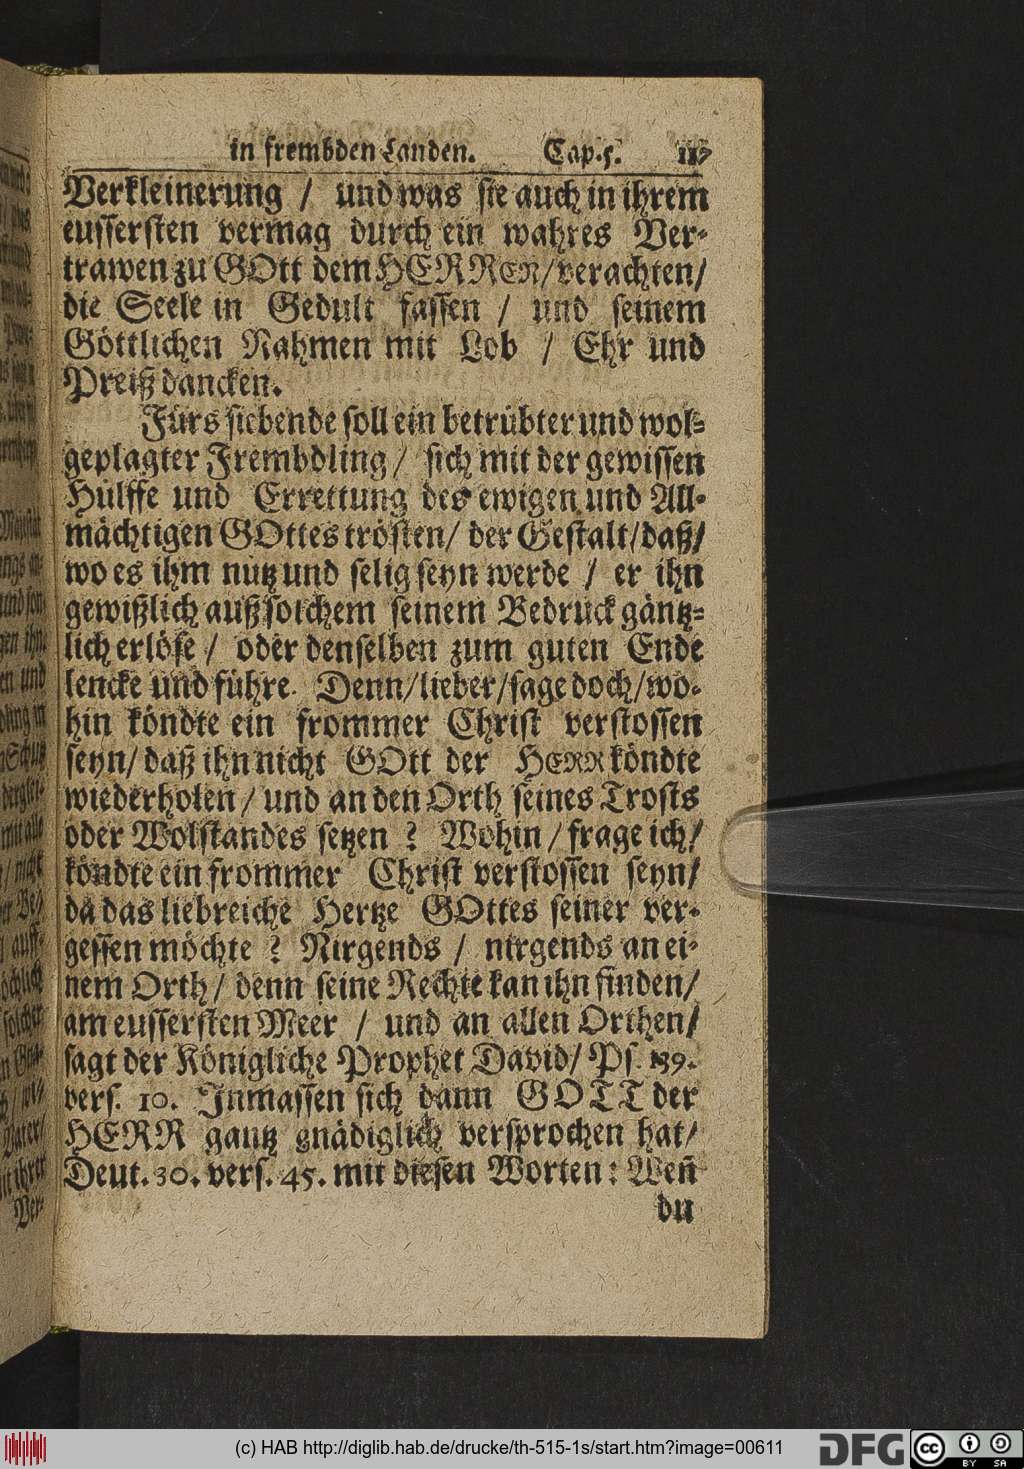 in frembden Landen. Cap. 5. 117
Verkleinerung / und was sie auch in ihrem
eussersten vermag durch ein wahres Ver-
trawen zu GOtt dem HERREN / verachten /
die Seele in Gedult fassen / und seinem
Göttlichen Nahmen mit Lob / Ehr und
Preiß dancken.
Fürs siebende soll ein betrübter und wol-
geplagter Frembdling / sich mit der gewissen
Hülffe und Errettung des ewigen und All-
mächtigen GOttes trösten / der Gestalt / daß /
wo es ihm nutz und selig seyn werde / er ihn
gewißlich auß solchem seinem Bedruck gäntz-
lich erlöse / oder denselben zum guten Ende
lencke und führe. Denn / lieber / sage doch / wo-
hin köndte ein frommer Christ verstossen
seyn / daß ihn nicht GOtt der HERR köndte
wiederholen / und an den Orth seines Trosts
oder Wolstandes setzen ? Wohin / frage ich /
köndte ein frommer Christ verstossen seyn /
da das liebreiche Hertze GOttes seiner ver-
gessen möchte ? Nirgends / nirgends an ei-
nem Orth / denn seine Rechte kan ihn finden /
am eussersten Meer / und an allen Orthen /
sagt der Königliche Prophet David / Ps. 139.
vers. 10. Inmassen sich dann GOTT der
HERR gantz gnädiglich versprochen hat /
Deut. 30. vers. 45. mit diesen Worten : Weñ
du
(c) HAB http://diglib.hab.de/drucke/th-515-1s/start.htm?image=00611
DFG cc BY SA